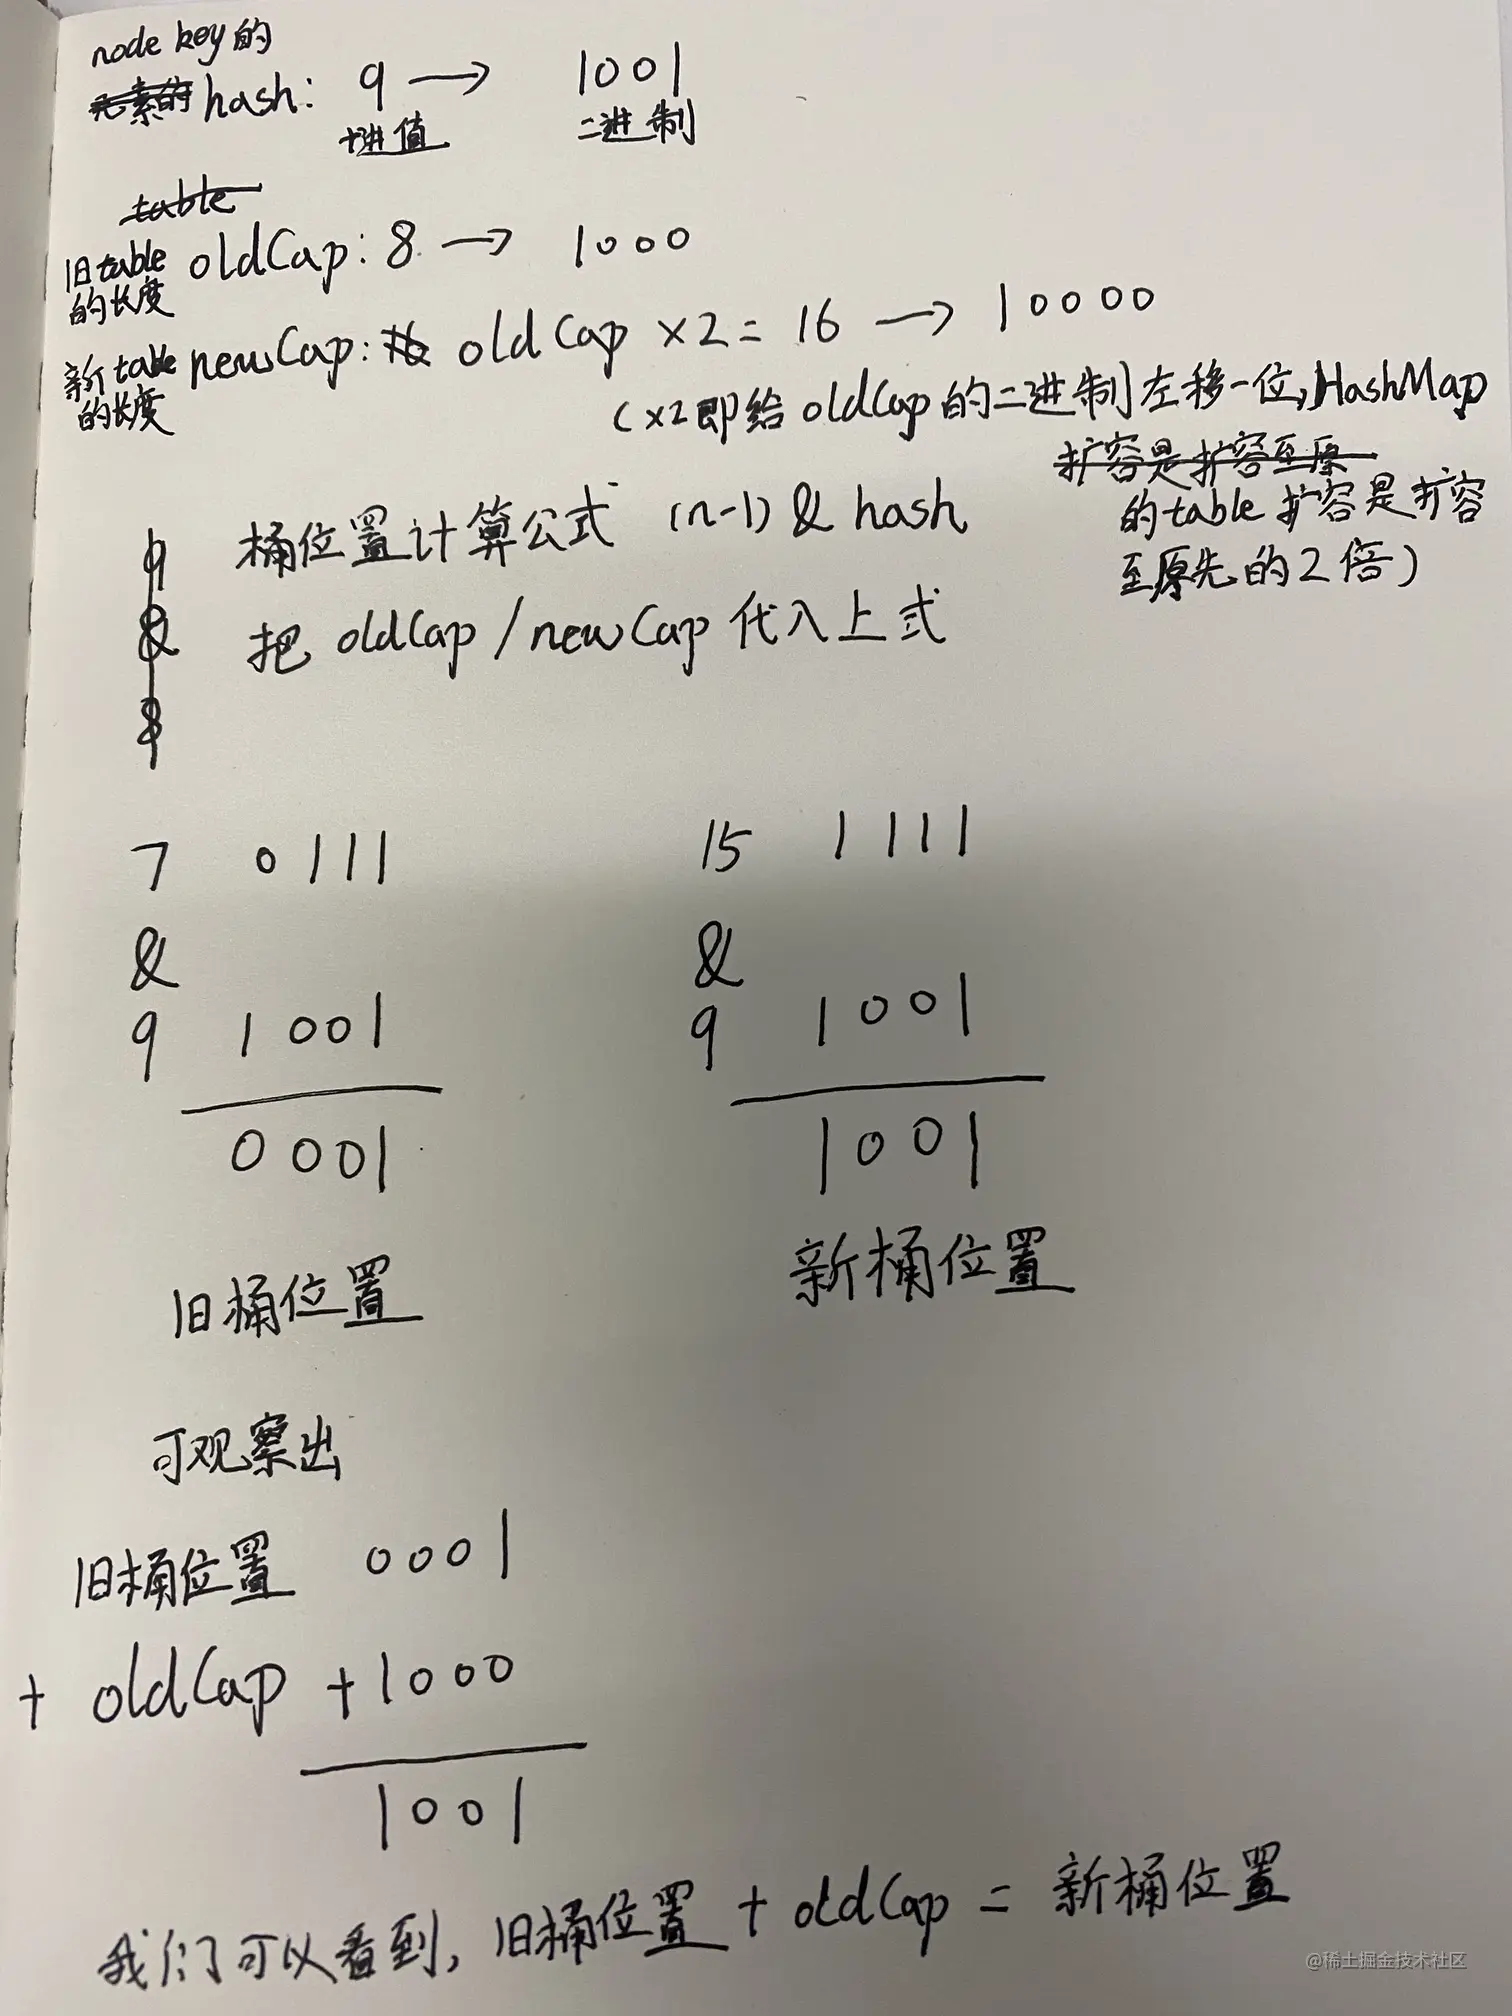 node key的
元素的 hash: 9 → 1001
十进值 二进制
table
旧table的长度 oldCap: 8 → 1000
新table的长度 newCap: 16 oldCap ×2 = 16 → 10000
(×2即给oldCap的二进制左移一位,HashMap
扩容是扩容至原
的table扩容是扩容
至原先的2倍)
9 桶位置计算公式 (n-1) & hash
& 把 oldCap / newCap 代入上式
8
7 0111 15 1111
& &
9 1001 9 1001
0001 1001
旧桶位置 新桶位置
可观察出
旧桶位置 0001
+ oldCap +1000
1001
我们可以看到,旧桶位置 + oldCap = 新桶位置
@稀土掘金技术社区